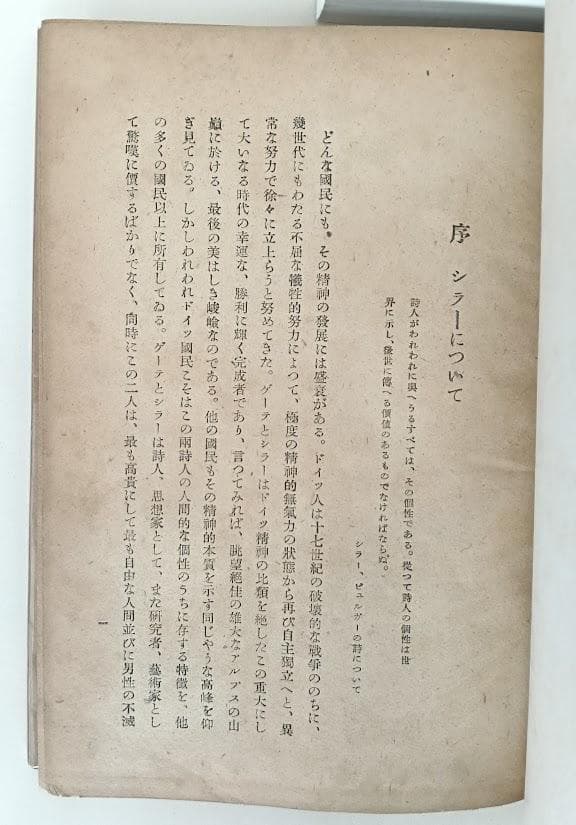 序 シラーについて
詩人がわれわれに與へうるすべては、その個性である。從つて詩人の個性は世
界に示し、後世に傳へる價値のあるものでなければならぬ。
シラー、ビュルガーの詩について
どんな國民にも、その精神の發展には盛衰がある。ドイツ人は十七世紀の破壞的な戰爭ののちに、
幾世代にもわたる不屈な犧牲的努力によつて、極度の精神的無氣力の狀態から再び自主獨立へと、異
常な努力で徐々に立上らうと努めてきた。ゲーテとシラーはドイツ精神の比類を絕したこの重大にし
て大いなる時代の幸運な、勝利に輝く完成者であり、言つてみれば、眺望絕佳の雄大なアルプスの山
巓に於ける、最後の美はしき峻嶮なのである。他の國民もその精神的本質を示す同じやうな高峰を仰
ぎ見てゐる。しかしわれわれドイツ國民こそはこの兩詩人の人間的な個性のうちに存する特徵を、他
の多くの國民以上に所有してゐる。ゲーテとシラーは詩人、思想家として、また硏究者、藝術家とし
て驚嘆に價するばかりでなく、同時にこの二人は、最も高貴にして最も自由な人間並びに男性の不滅
一